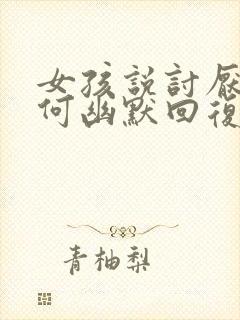 女孩説討厭
何幽默回復
青柚梨